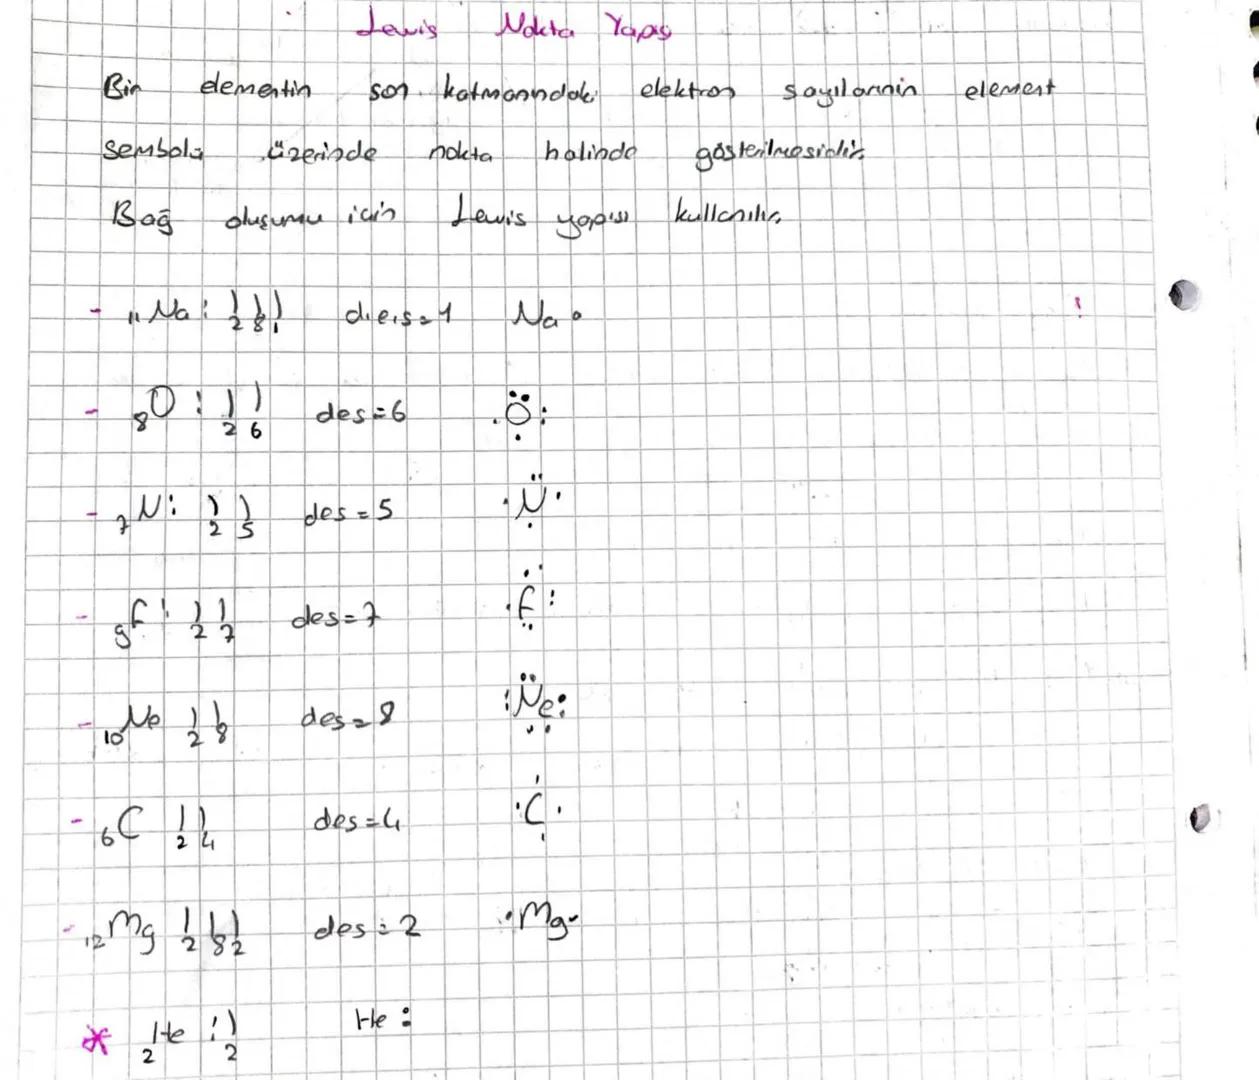 Lewis Nokta Yapısı
Bir elementin son katmanındaki elektron sayılarının element
sembolü üzerinde nokta halinde gösterilmesidir.
Bağ oluşumu için Lewis yapısı kullanılır.
- 11Na : 2 8 1 d.e.s=1 Na
- 8O : 2 6 des=6 O
- 7N : 2 5 des=5 N
- 9F : 2 7 des=7 F
- 10Ne 2 8 des=8 Ne
- 6C 2 4 des=4 C
- 12Mg 2 8 2 des=2 Mg
* 2He : 2 He :